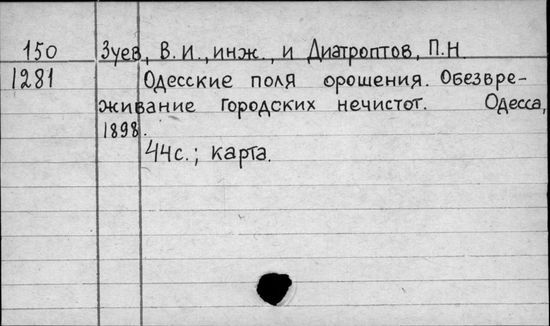 150 Зуев, В.И., инж., и Диатроптов, П.Н.
1281 Одесские поля орошения. Обезвре-
живание городских нечистот. Одесса,
1898.
44с.; карта.